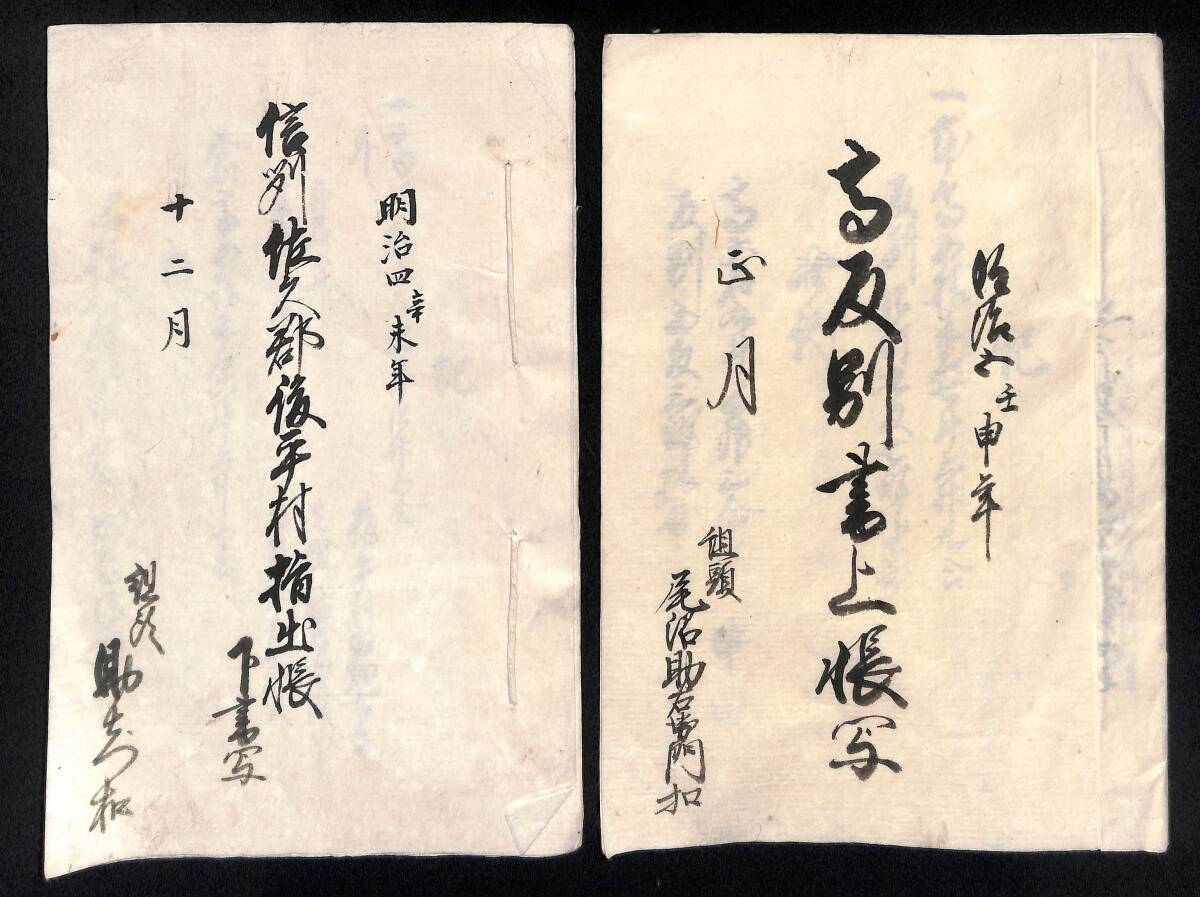 明治五壬申年
高反別書上帳写
正月
組頭
尾沼助右衛門扣
明治四辛未年
信州佐久郡後平村指出帳
下書写
十二月
組頭
助右衛門扣